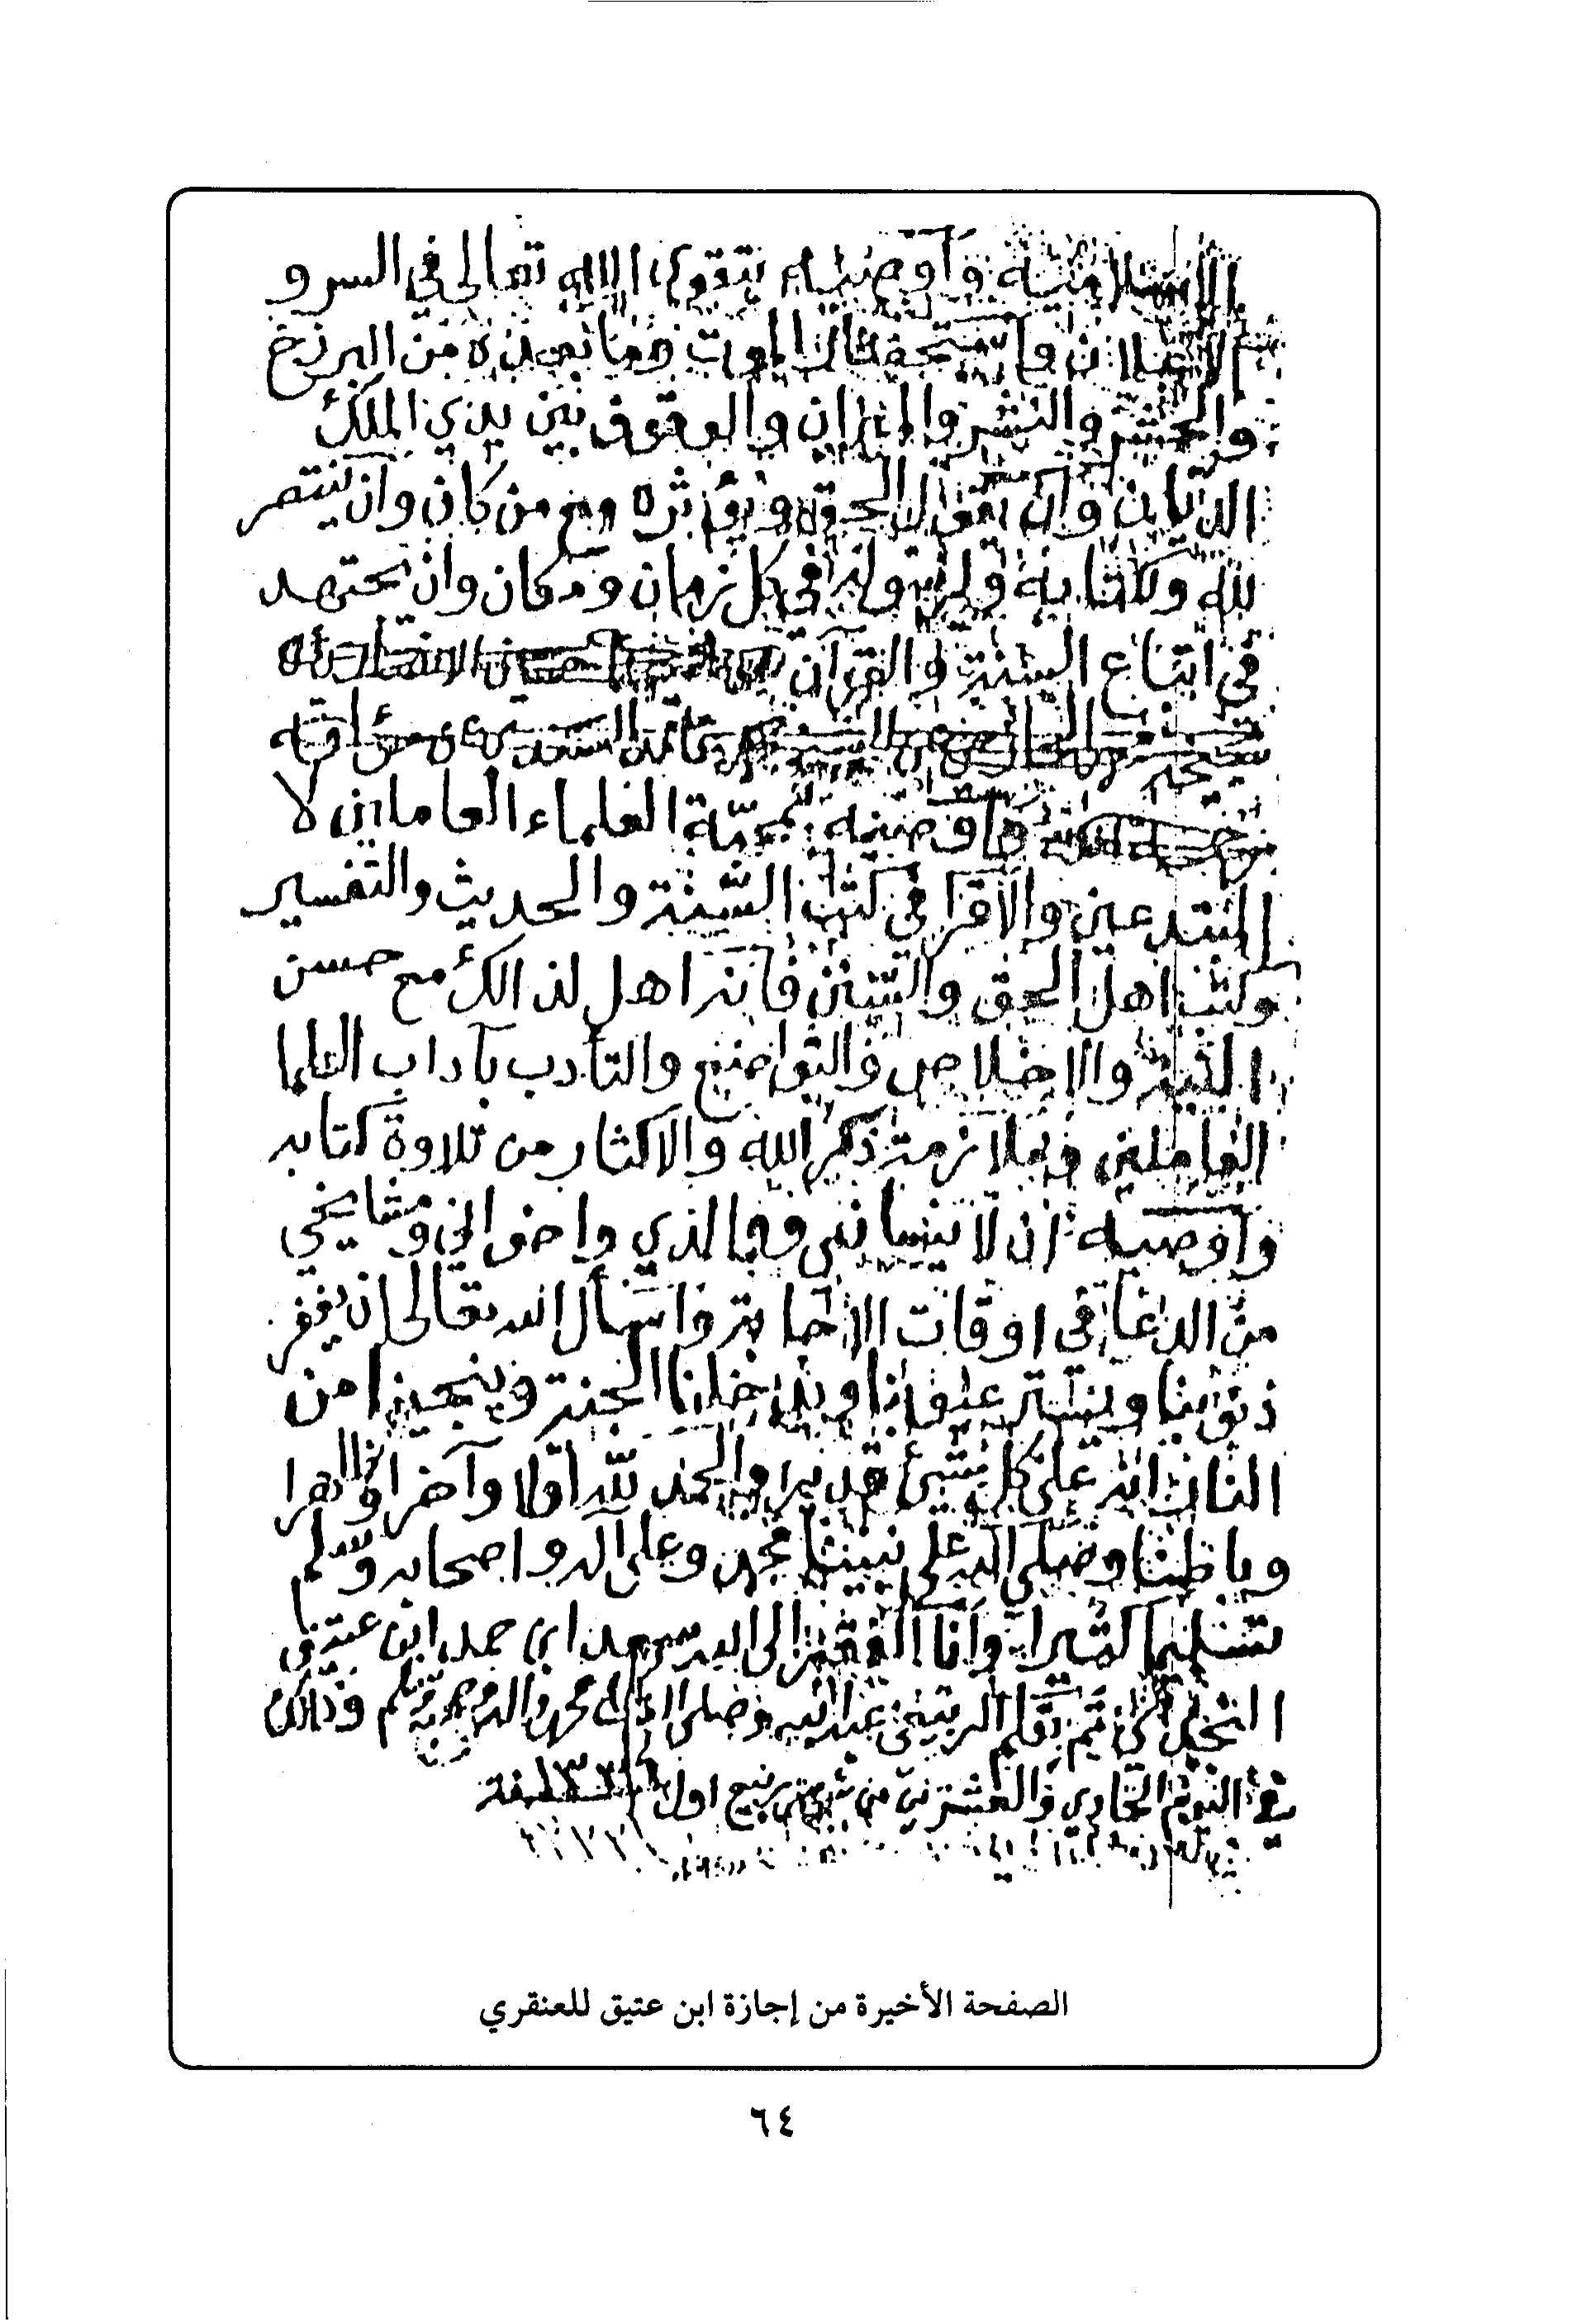 الإسلامية وأوصيه بتقوى الله تعالى في السر و
الاعلان وان يستحضر الموت وما بعده من البرزخ
والحشر والنشر والميزان والوقوف بين يدي الملك
الديان وأن يقول الحق ويؤثره مع من كان وان ينتصر
لله ولكتابه ولرسوله في كل زمان ومكان وان يجتهد
في اتباع السنة والقرآن
وأوصيه بمحبة العلماء العاملين لا
المبتدعين والاقرا في كتب السنة والحديث والتفسير
وكتب اهل الحق والسنن فانه اهل لذالك مع حسن
النية والاخلاص والتواضع والتأدب بآداب العلما
العاملين وبملازمة ذكر الله والاكثار من تلاوة كتابه
وأوصيه ان لا ينساني ووالدي واخواني ومشايخي
من الدعا في اوقات الاجابة واسأل الله تعالى ان يغفر
ذنوبنا ويستر عيوبنا ويدخلنا الجنة وينجينا من
النار انه على كل شيئ قدير والحمد لله اولا وآخرا وظاهرا
وباطنا وصلى الله على نبينا محمد وعلى آله واصحابه وسلم
تسليما كثيرا وانا الفقير الى الله سعد ابن حمد ابن عتيق
وذلك
في اليوم الحادي والعشرين من شهر ربيع اول
الصفحة الأخيرة من إجازة ابن عتيق للعنقري
٦٤